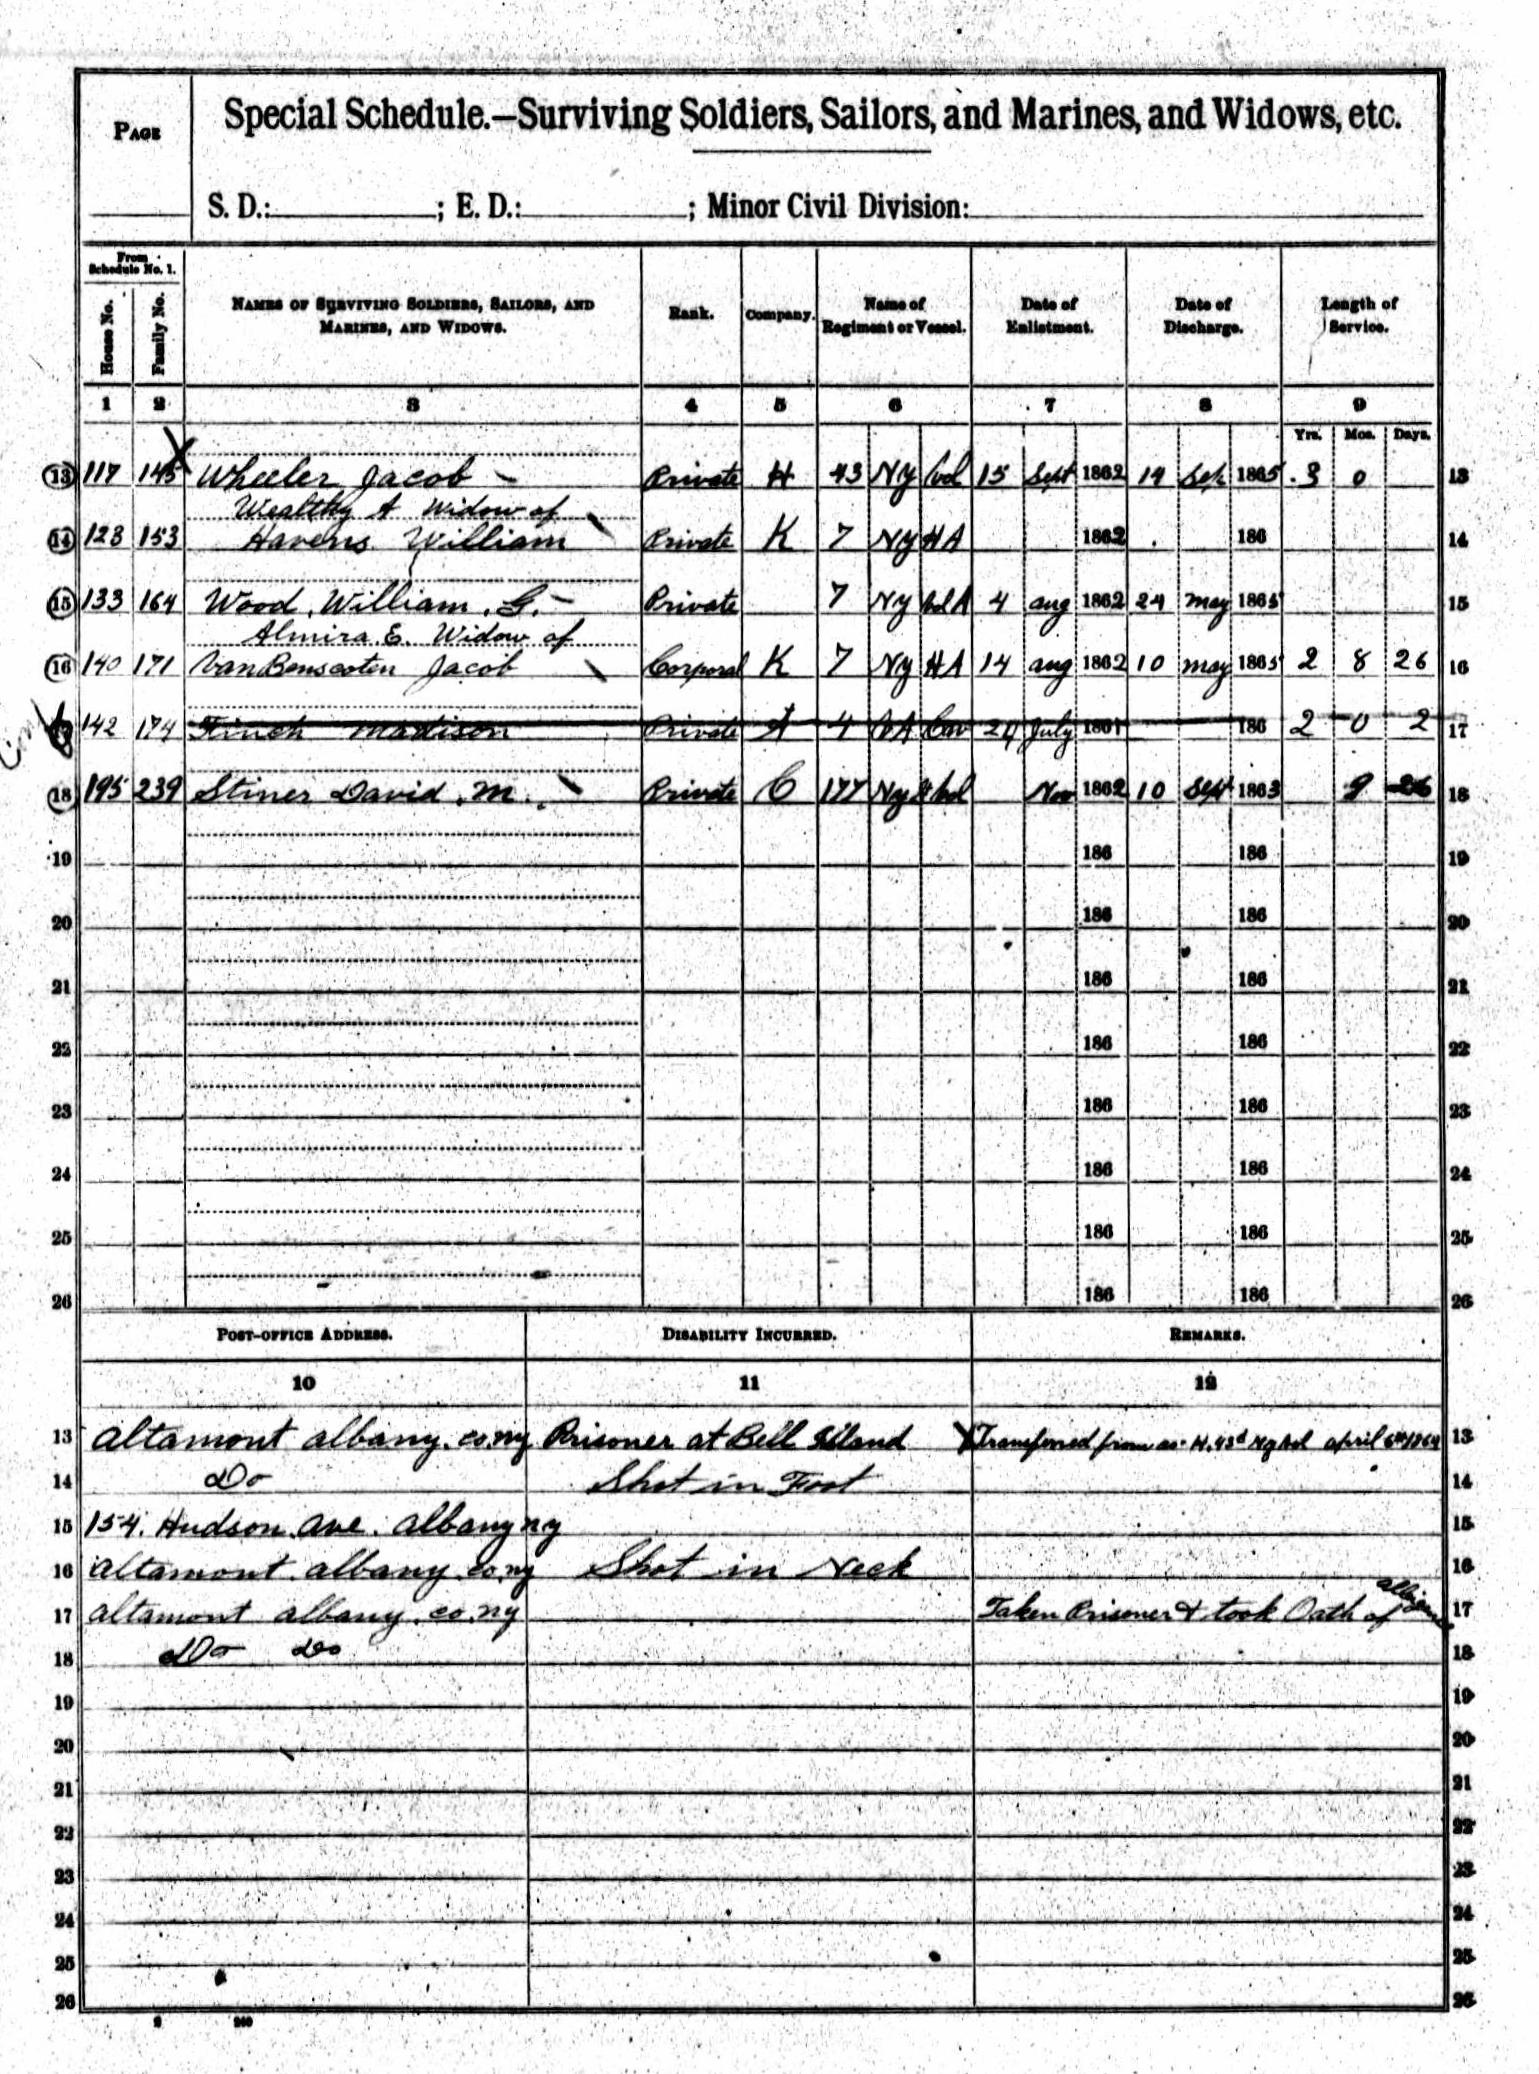 PAGE
Special Schedule.—Surviving Soldiers, Sailors, and Marines, and Widows, etc.
S. D.: ; E. D.: ; Minor Civil Division:
From Schedule No. 1.
House No. Family No. NAMES OF SURVIVING SOLDIERS, SAILORS, AND MARINES, AND WIDOWS. Rank. Company. Name of Regiment or Vessel. Date of Enlistment. Date of Discharge. Length of Service.
1 2 3 4 5 6 7 8 9
Yrs. Mos. Days.
13 117 145 Wheeler Jacob Private H 43 NY Vol 15 Sept 1862 14 Sep 1865 3 0 13
Wealthy A Widow of
14 128 153 Havens William Private K 7 NY HA 1862 186 14
15 133 164 Wood, William, G. Private 7 NY A 4 aug 1862 24 may 1865 15
Almira E. Widow of
16 140 171 VanBenscoten Jacob Corporal K 7 NY HA 14 aug 1862 10 may 1865 2 8 26 16
142 174 Finch Madison Private A 4 Cav 24 July 1861 186 2 0 2 17
18 195 239 Stiner David, M. Private C 177 Ny Vol Nov 1862 10 Sept 1863 9 26 18
19 186 186 19
20 186 186 20
21 186 186 21
22 186 186 22
23 186 186 23
24 186 186 24
25 186 186 25
26 186 186 26
POST-OFFICE ADDRESS. DISABILITY INCURRED. REMARKS.
10 11 12
13 altamont albany. co. ny Prisoner at Bell Island Transferred from co. H. 43d Ny Vol april 6th 1864 13
14 Do Shot in Foot 14
15 154. Hudson Ave. albany ny 15
16 altamont. albany. co. ny Shot in Neck 16
17 altamont albany. co. ny Taken Prisoner & took Oath of 17
18 Do Do 18
19 19
20 20
21 21
22 22
23 23
24 24
25 25
26 26